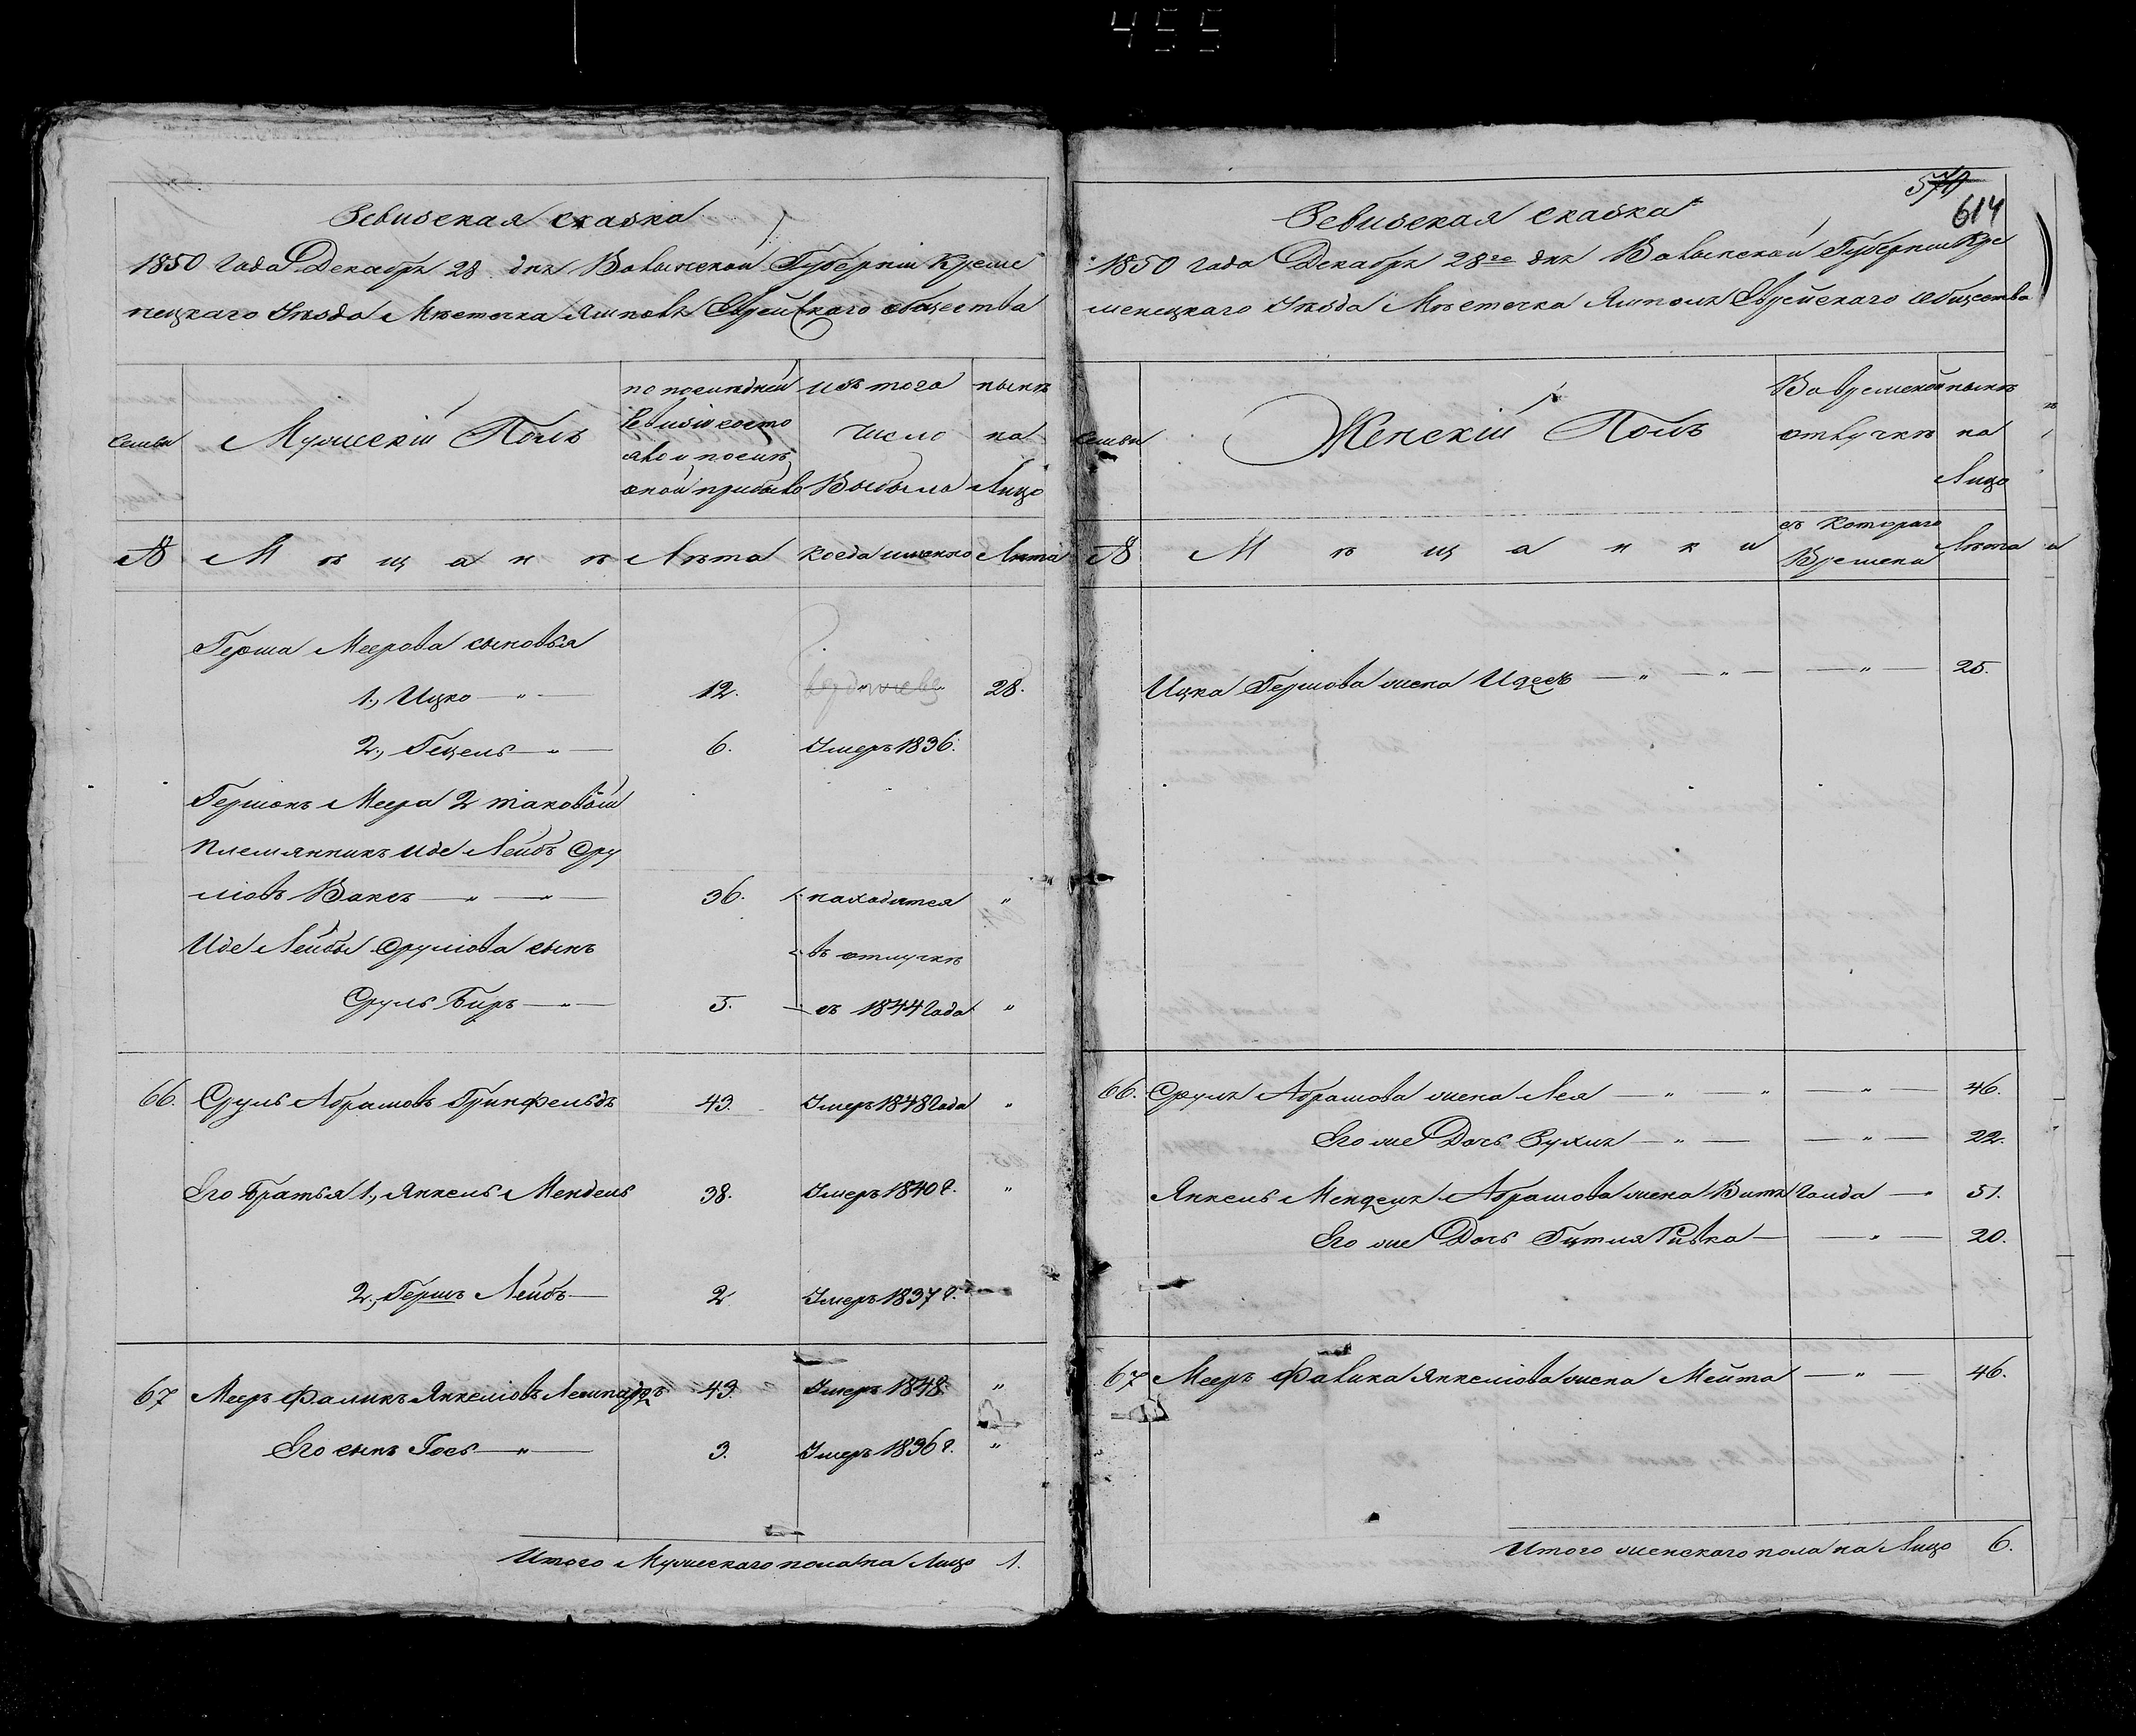 455
Ревизская сказка
1850 года Декабря 28 дня Волынской Губерніи Креме
нецкаго Уезда Местечка Ямполя Еврейскаго общества
Семьи
Мужескій Полъ
по последней
Ревизіи состо
яло и после
оной прибыло
изъ того
число
Выбыло
ныне
на
Лицо
№
Мещане
Лета
когда именно
Лета
Герша Меерова сыновья
1., Ицко — " —
12.
28.
2., Гецель — " —
6.
Умеръ 1836.
Гершонъ Меера 2 таковой
племянникъ Иде Лейбъ Сру
ліовъ Ваксъ — " — " —
36.
находится
"
Иде Лейбы Сруліова сынъ
въ отлучке
Сруль Беръ — " —
5.
съ 1844 Года
"
66.
Сруль Абрамовъ Гринфельдъ
43.
Умеръ 1848 Года
"
Его братья 1., Янкель Мендель
38.
Умеръ 1840 г.
"
2., Гершъ Лейбъ —
2
Умеръ 1837 г.
67
Мееръ Фаликъ Янкеліовъ
43.
Умеръ 1848
"
Его сынъ Гось — " —
3.
Умеръ 1836 г.
"
Итого Мужескаго пола на Лицо 1.
570
614
Ревизская сказка
1850 года Декабря 28го дня Волынской Губерніи Кре
менецкаго Уезда Местечка Ямполя Еврейскаго Общества
Семьи
Женскій Полъ
Во временной
отлучке
ныне
на
Лицо
№
Мещанки
съ Котораго
Времени
Лета
Ицка Гершова жена Идесъ — " — " —
— " —
25.
66.
Сруля Абрамова жена Лея — " — " —
— " —
46.
Его же Дочь Рухля — " —
— " —
22.
Янкель Менделя Абрамова жена Витя Голда —
51.
Его же Дочь Гитля Ривка —
— " —
20.
67
Мееръ Фалика Янкеліова жена Мейта
— " —
46.
Итого женскаго пола на Лицо 6.